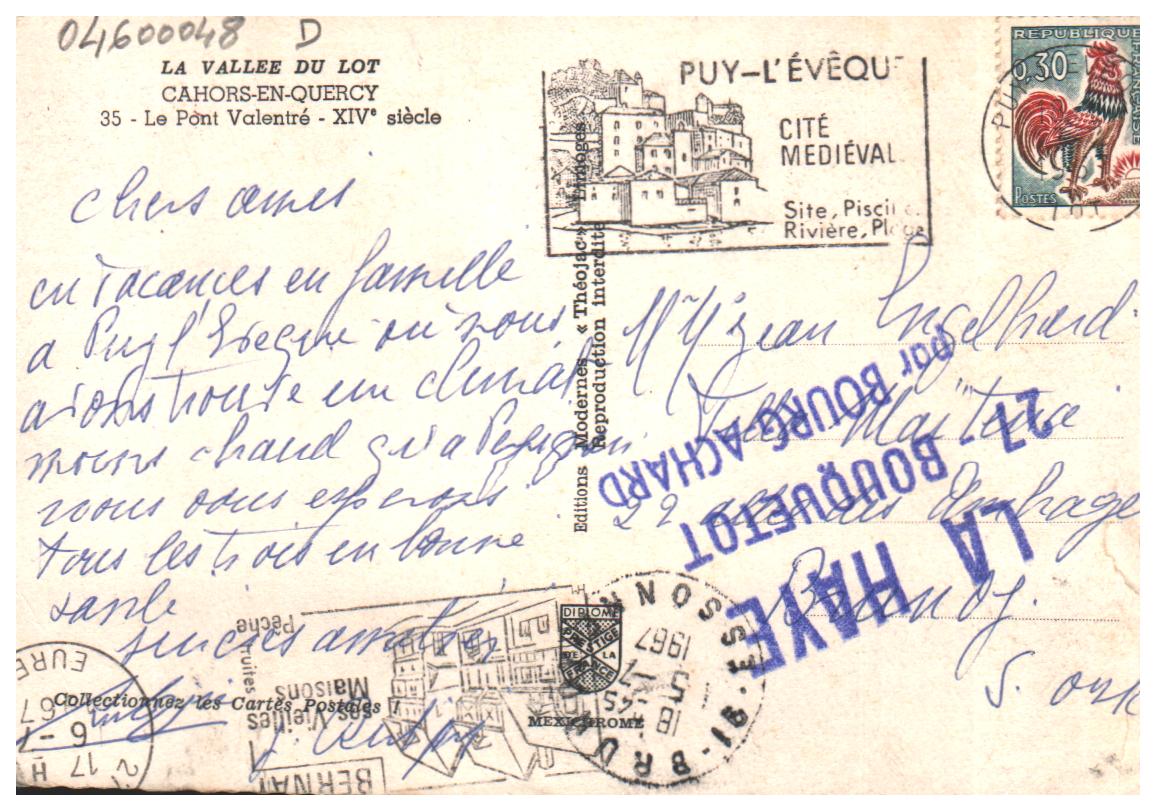 04600048 D
LA VALLEE DU LOT
CAHORS-EN-QUERCY
35 - Le Pont Valentré - XIVe siècle
PUY-L'ÉVÊQUE
CITÉ
MEDIÉVAL
Site, Pisci
Rivière, Plage
REPUBLIQUE FRANÇAISE
0,30
POSTES
LOT
chers amis
en vacances en famille
a Puy l'Eveque où nous
avons trouve un climat
moins chaud qu'a Perpignan
nous vous esperons
tous les trois en bonne
sante
sinceres amities
Editions Modernes « Théojac » Limoges
Reproduction interdite
Mr Jean Engelhard
Villa
22
Brunoy
S. Oise
LA HAYE
27 - BOUQUETOT
par BOURG-ACHARD
DIPLOME
PRESTIGE
DE LA
FRANCE
MEXICHROME
Collectionnez les Cartes Postales !
91 - BRUNOY ESSONNE
18 45
5
1967
BERNAY
Ses Vieilles
Maisons
Truites
Pêche
17 H
6
67
EURE